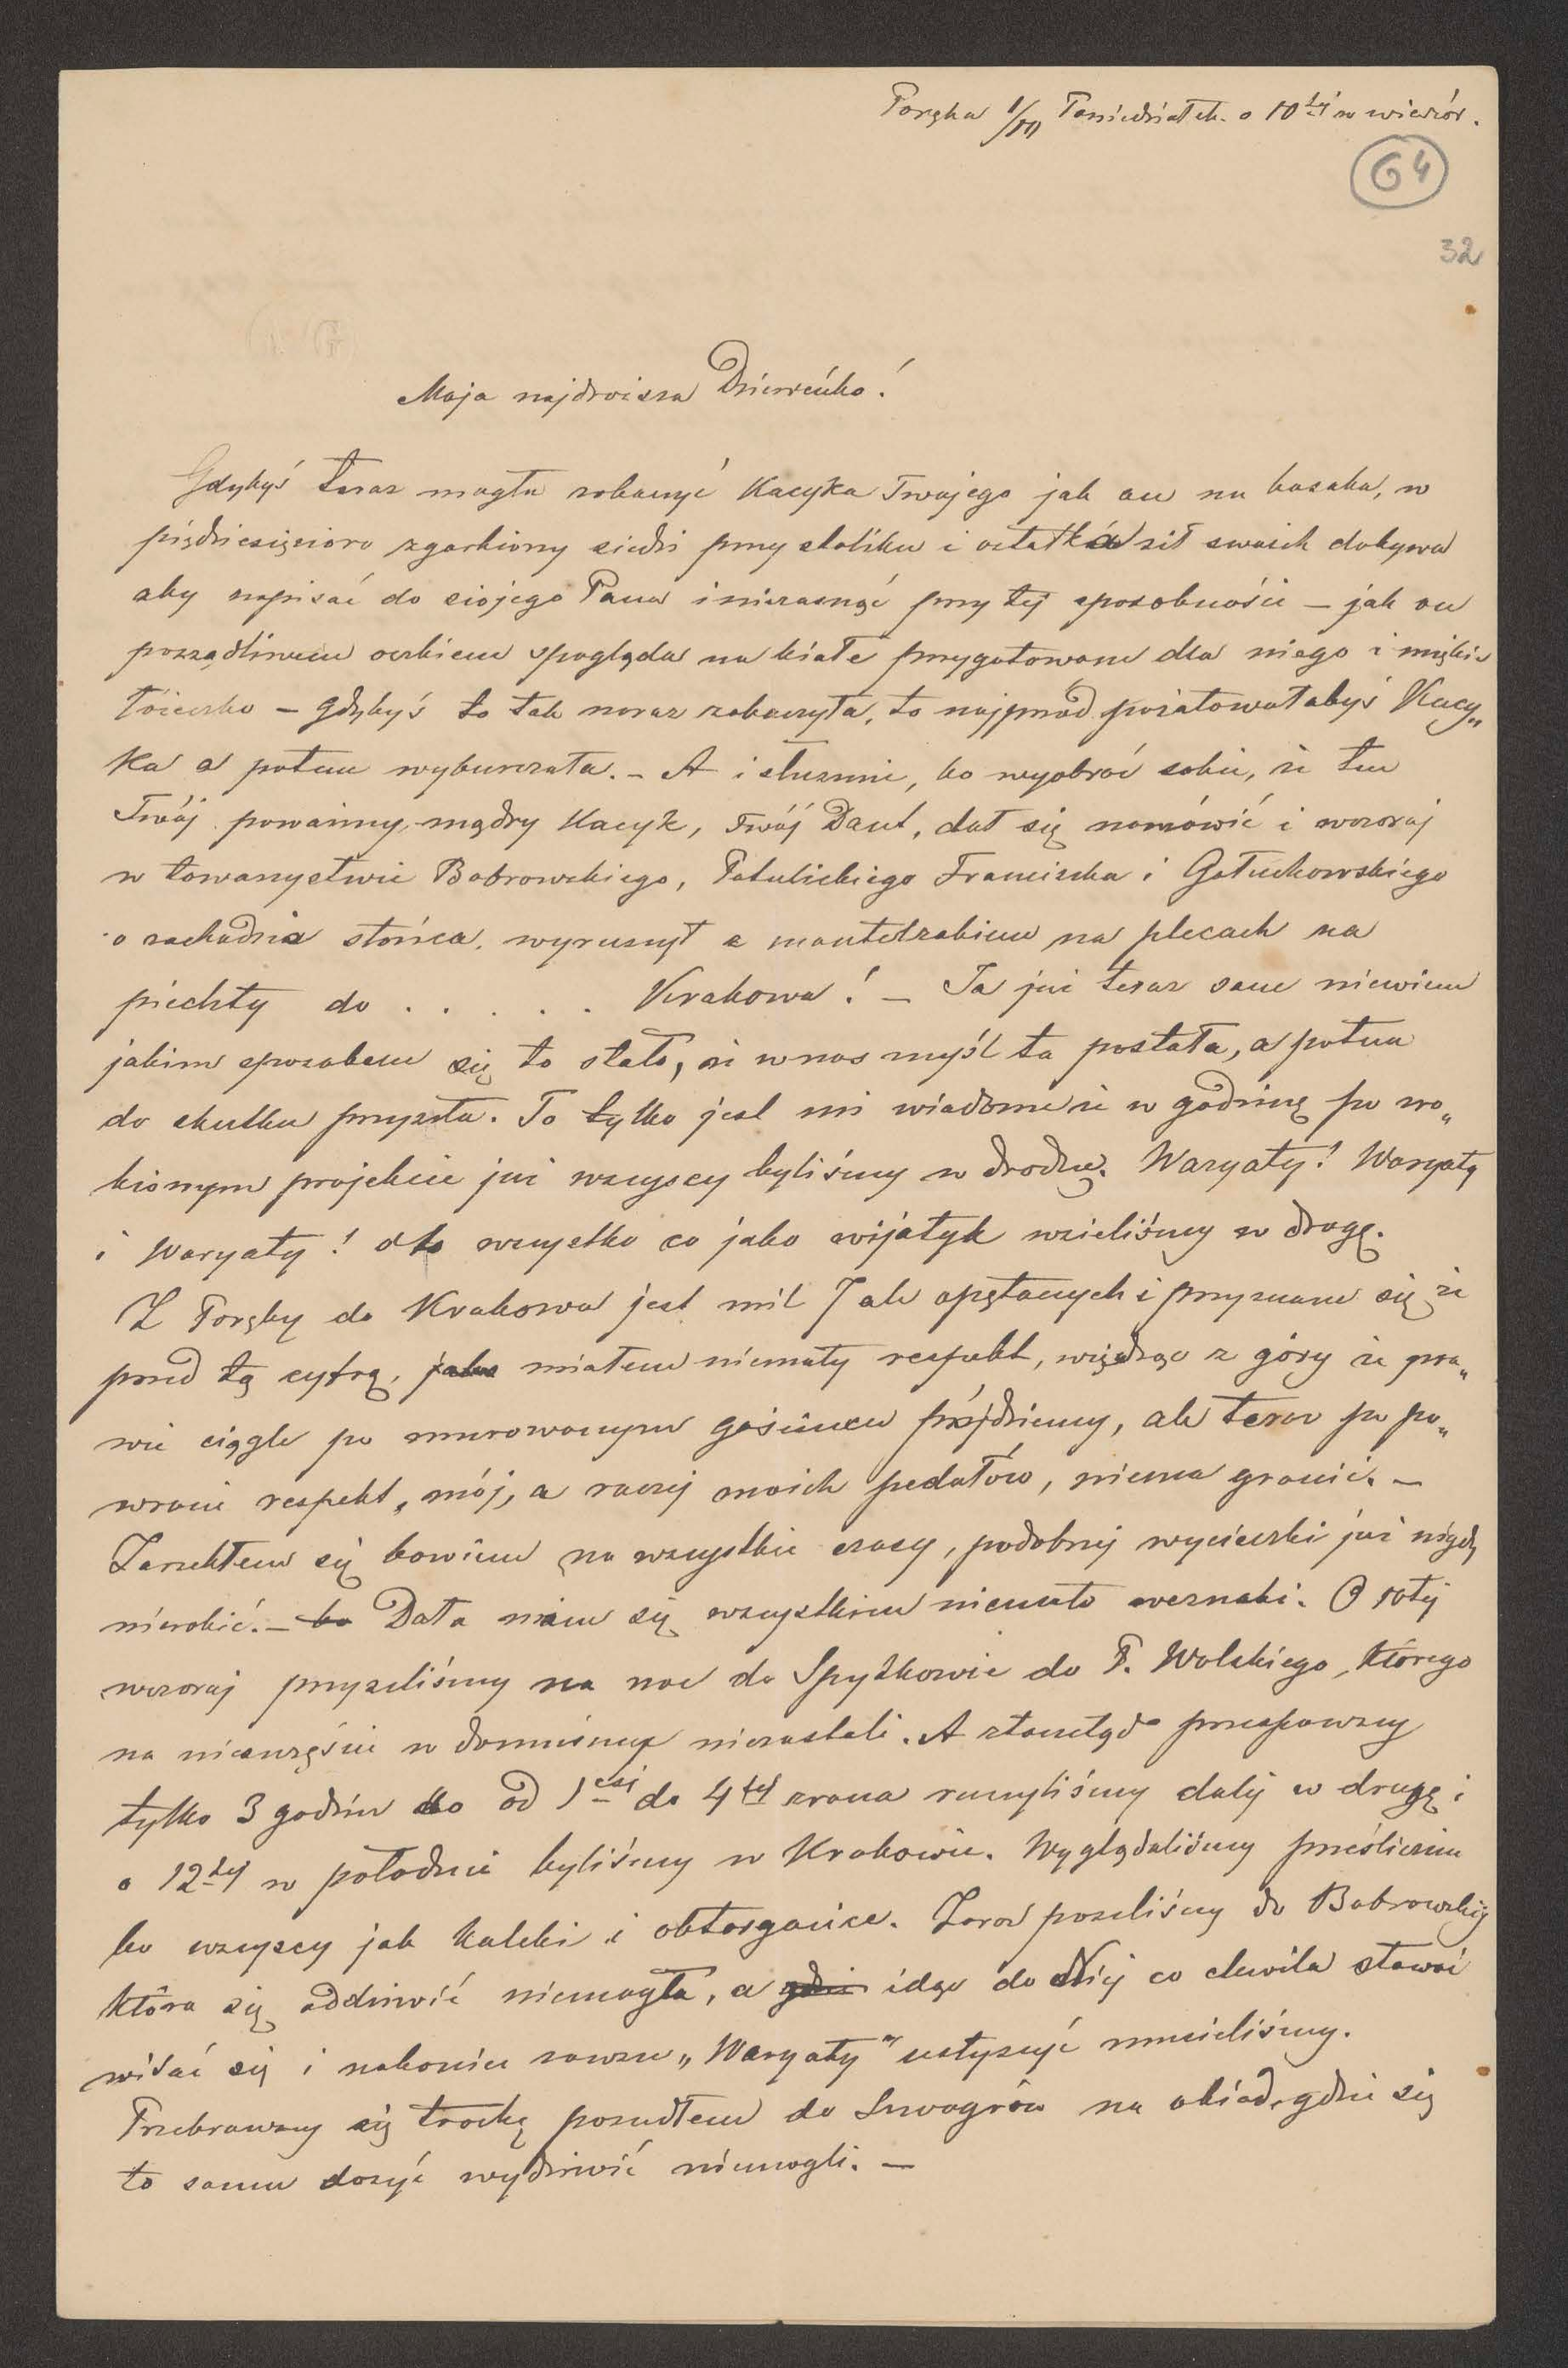 Poręba 1/10 Poniedziałek o 10tej w wieczór.
64
32
Moja najdroższa Dzieweńko!
Gdybyś teraz mogła zobaczyć Kacyka Twojego jak on na kozaka, w
pięćdziesięcioro zgarbiony siedzi przy stoliku i ostatków sił swoich dobywa
aby napisać do siojego Pana i niezasnąć przy tej sposobności – jak on
pożądliwem oczkiem spogląda na białe przygotowane dla niego i miękie
łóżeczko – gdybyś to tak naraz zobaczyła, to najprzód pożałowałabyś Kacy„
ka a potem wyburczała. – A i słusznie, bo wyobraź sobie, że ten
Twój poważny, mądry Kacyk, Twój Daut, dał się namówić i wczoraj
w towarzystwie Bobrowskiego, Potulickiego Franciszka i Gołuchowskiego
o zachodzie słońca, wyruszył z mantelzakiem na plecach na
piechty do . . . . . Krakowa! – Ja już teraz sam niewiem
jakim sposobem się to stało, że w nas myśl ta postała, a potem
do skutku przyszła. To tylko jest mi wiadome że w godzinę po zro„
bionym projekcie już wszyscy byliśmy w drodze. Waryaty! Waryaty
i Waryaty! oto wszystko co jako wijatyk wzieliśmy w drogę.
Z Poręby do Krakowa jest mil 7 ale opętanych i przyznam się że
przed tą cyfrą, jaka miałem niemały respekt, wiedząc z góry że pra„
wie ciągle po murowanym gościńcu pójdziemy, ale teraz po po„
wrocie respekt, mój, a raczej moich pedałów, niema granic. –
Zarzekłem się bowiem na wszystkie czasy, podobnej wycieczki już nigdy
nierobić. – bo Dała nam się wszystkim niemało weznaki. O 10tej
wczoraj przyszliśmy na noc do Spytkowic do P. Wolskiego, którego
na nieszczęście w domuśmy niezastali. A ztamtąd przespawszy
tylko 3 godzin do od 1szej do 4tej zrana ruszyliśmy dalej w drogę i
o 12tej w południe byliśmy w Krakowie. Wyglądaliśmy prześlicznie
bo wszyscy jak kaleki i obtargańce. Zaraz poszliśmy do Bobrowskiej
która się oddziwić niemogła, a gdzie idąc do Niej co chwila stawać
witać się i nakoniec zawsze „Waryaty" usłyszyć musieliśmy.
Przebrawszy się trochę poszedłem do Szwagrów na obiad, gdzie się
to samo dosyć wydziwić niemogli. –